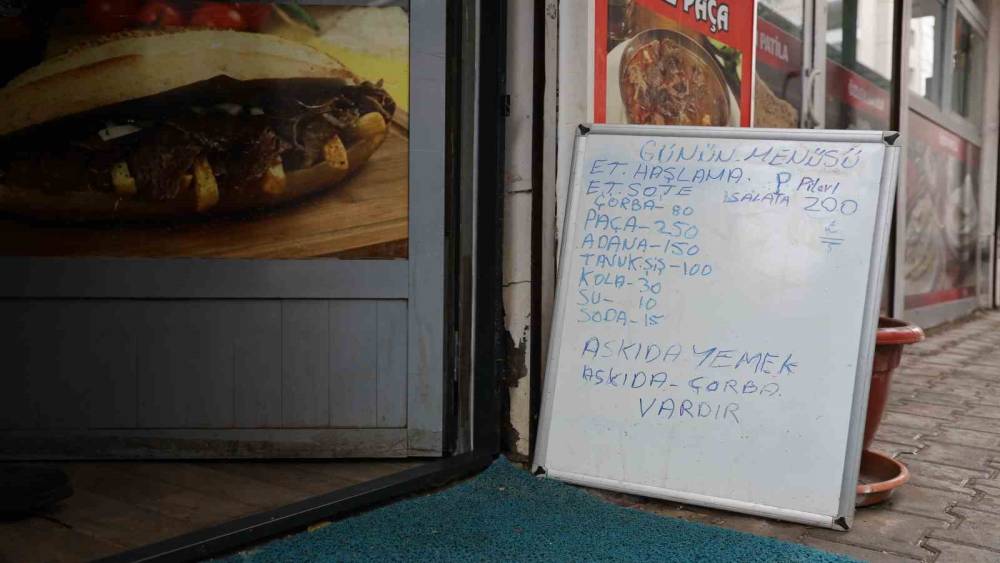 PAÇA
PATİLA
GÜNÜN MENÜSÜ
ET. HAŞLAMA. P Pilavı
ET. SOTE SALATA 200
ÇORBA- 80
PAÇA-250
ADANA-150
TAVUK.ŞİŞ-100
KOLA-30
SU- 10
SODA-15
ASKIDA YEMEK
ASKIDA-ÇORBA.
VARDIR